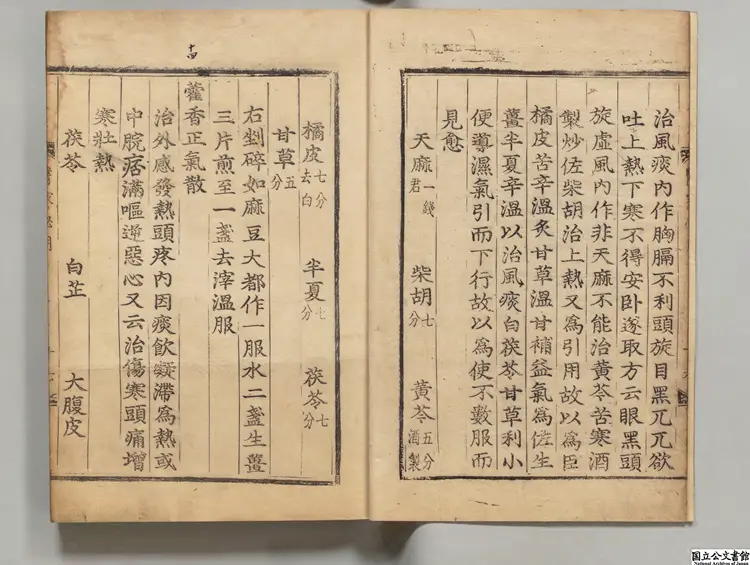 治風痰內作胸膈不利頭旋目黑兀兀欲
吐上熱下寒不得安卧遂取方云眼黑頭
旋虛風內作非天麻不能治黃芩苦寒酒
製炒佐柴胡治上熱又爲引用故以爲臣
橘皮苦辛溫炙甘草溫甘補益氣爲佐生
薑半夏辛溫以治風痰白茯苓甘草利小
便導濕氣引而下行故以爲使不數服而
見愈
天麻一錢君 柴胡七分 黃芩五分酒製
十四
橘皮七分去白 半夏七分 茯苓七分
甘草五分
右剉碎如麻豆大都作一服水二盞生薑
三片煎至一盞去滓溫服
藿香正氣散
治外感發熱頭疼內因痰飮凝滯爲熱或
中脘痞滿嘔逆惡心又云治傷寒頭痛增
寒壯熱
茯苓 白芷 大腹皮
国立公文書館
National Archives of Japan